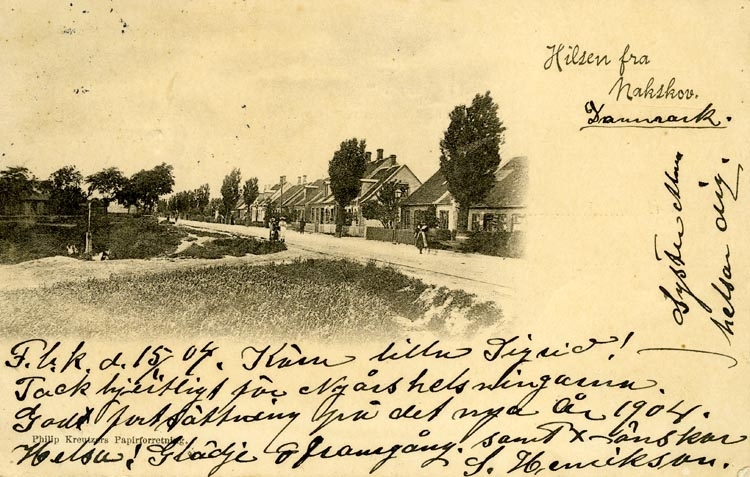 Hilsen fra
Nakskov.
Dannmark.
Syster Alma
helsar dig.
F.b.k. d. 15/1 04. Käre lilla Sigrid!
Tack hjertligt för Nyårshelsningarna.
Godt fortsättning på det nya år 1904.
Philip Kreutzers Papirforretning.
Helsa! Glädje o framgång. samt önskar
S. Henrikson.